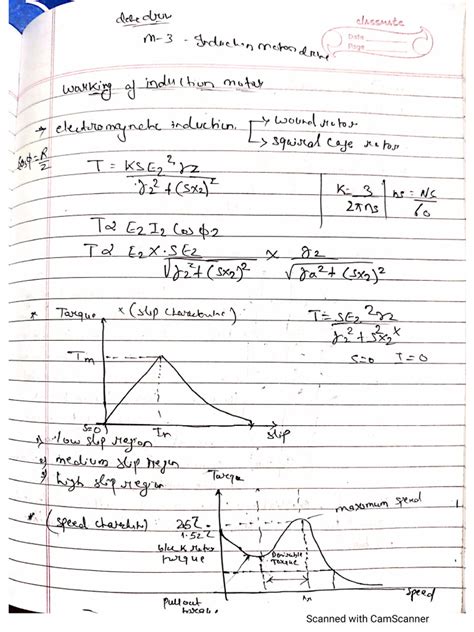 classmate
Date
Page
M-3 - Induction motor drive
working of induction motor
→ electromagnetic induction → wound rotor
→ squiral cage rotor
cosφ = R/Z
T = KSE₂² r₂ / r₂² + (sx₂)²
K = 3 / 2πns
ns = NS / 60
T α E₂ I₂ cos φ₂
T α E₂ X · SE₂ / √r₂² + (sx₂)² × r₂ / √r₂² + (sx₂)²
* Torque × (slip
T = SE₂² r₂ / r₂² + s²x₂²
s=0 T=0
Tm
s=0
slip
1) low slip region
2) medium slip region
3) high slip region
Torque
* (speed
maximum speed
1.52T
block rotor
torque
Desirable
Torque
speed
Pullout
torque
Scanned with CamScanner